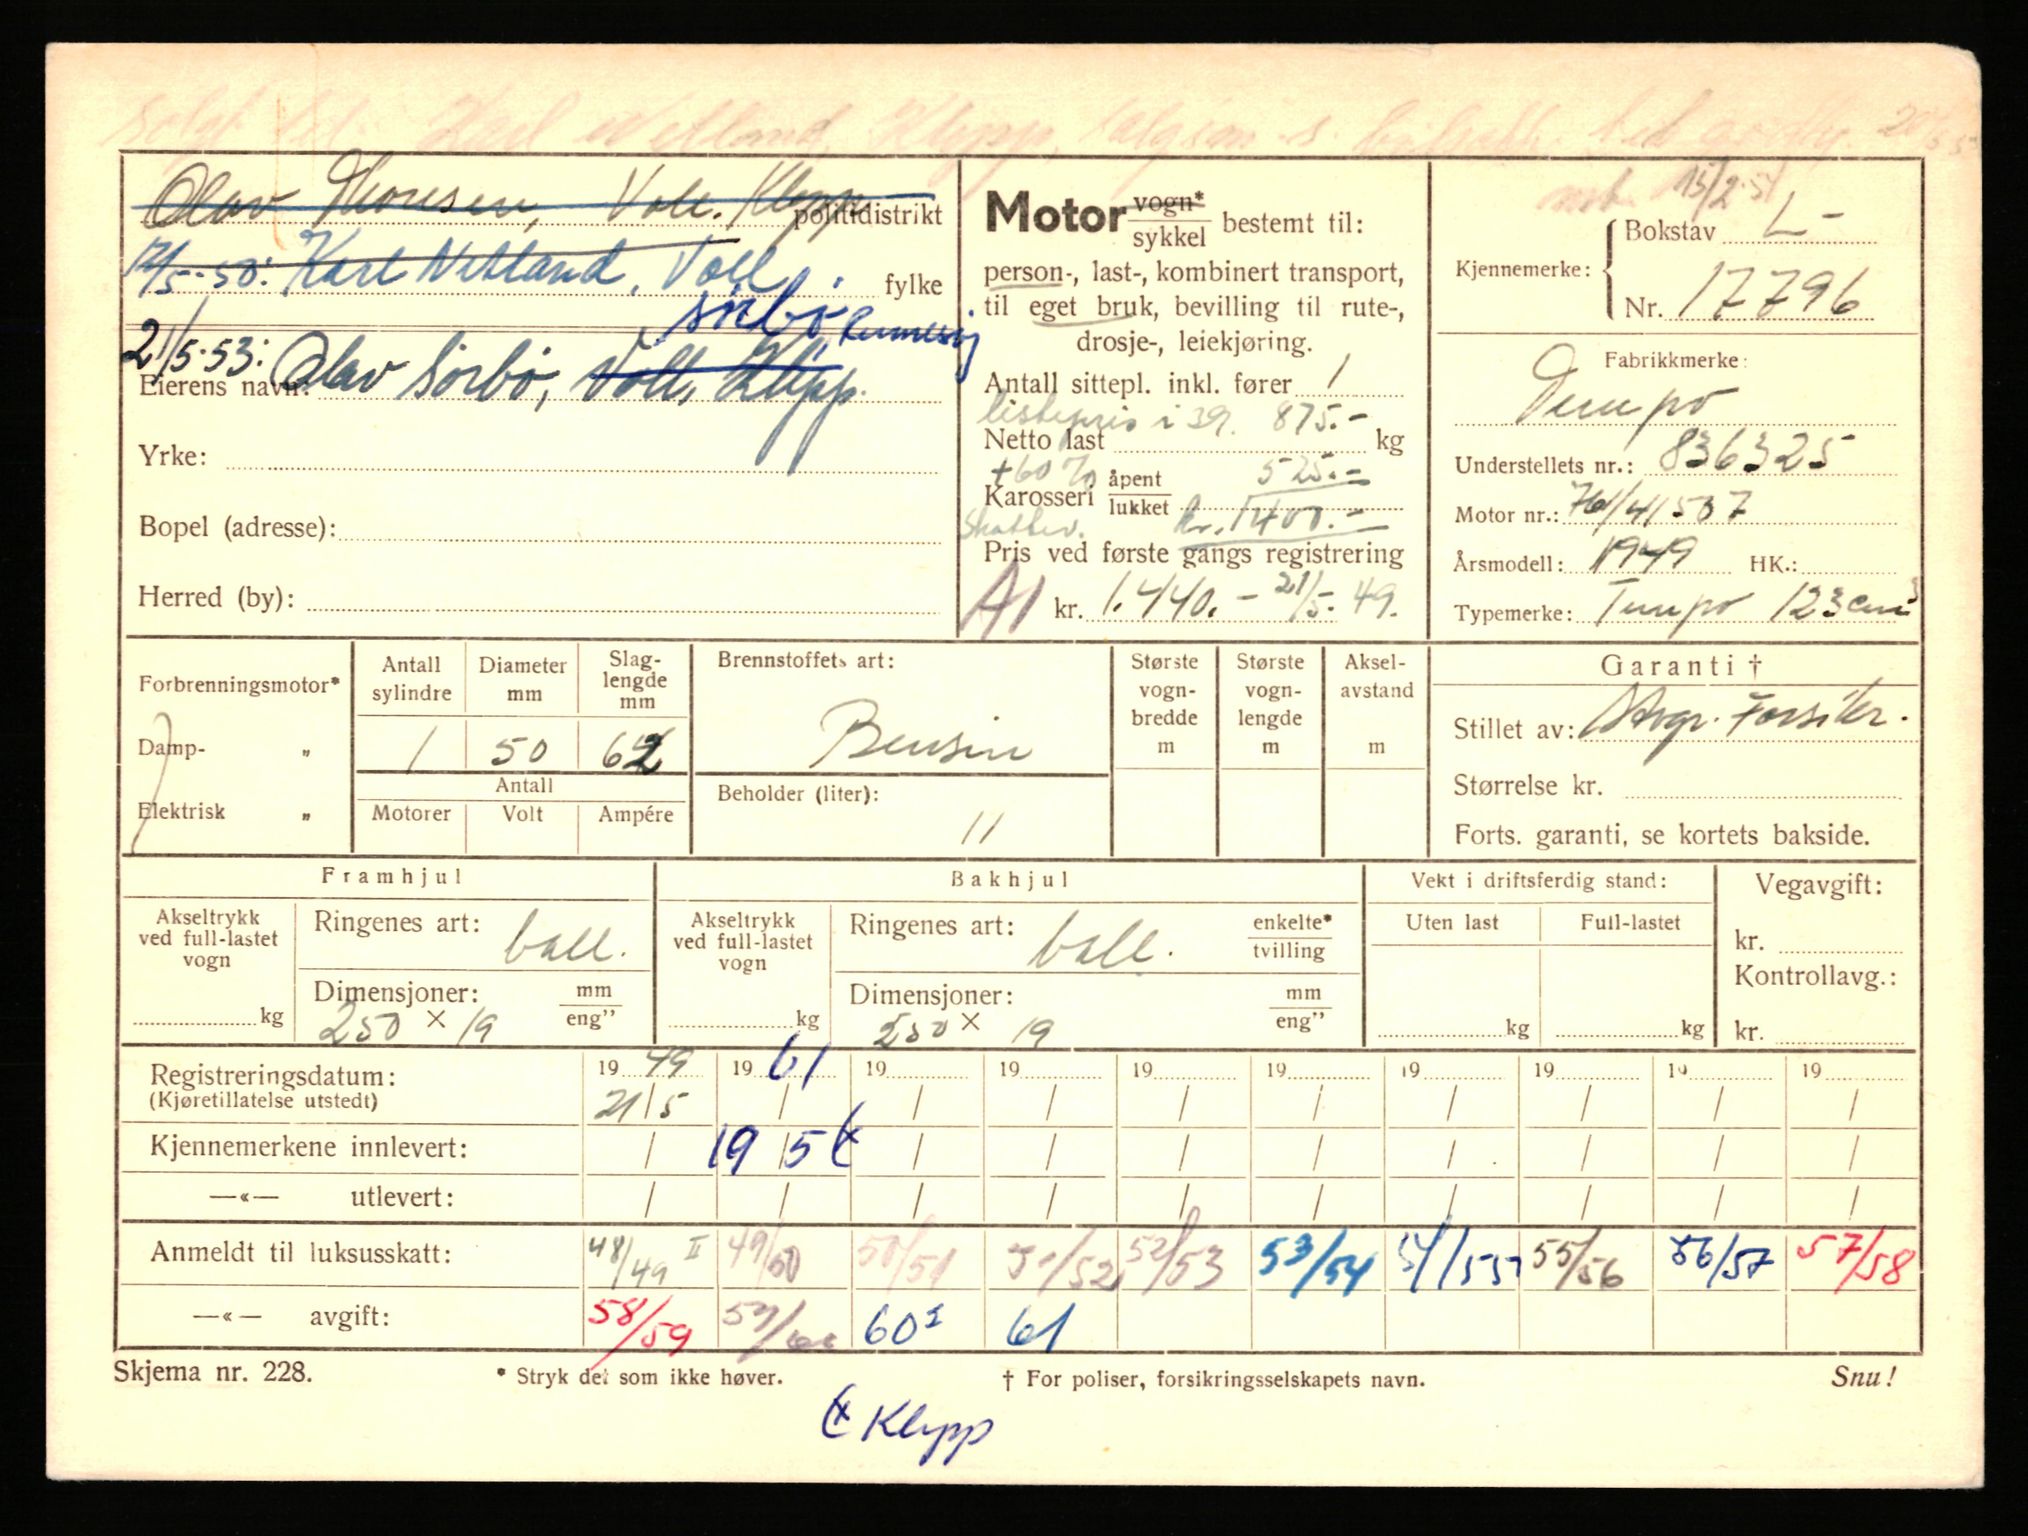 Solgt til: Karl Netland, Klepp,
Olav Thorsen, Voll. Klepp
politidistrikt
12/5-50: Karl Netland, Voll.
fylke
Sörbö, Rennesøy
21/5-53: Olav Sörbö, Voll, Klepp.
Eierens navn:
Yrke:
Bopel (adresse):
Herred (by):
Motor vogn*
sykkel bestemt til:
person-, last-, kombinert transport,
til eget bruk, bevilling til rute-,
drosje-, leiekjøring.
Antall sittepl. inkl. fører 1
listepris i 39. 875.-
Netto last kg
+60% 525.-
Karosseri åpent
lukket
kr. 1400.-
Pris ved første gangs registrering
A1 kr. 1.440.- 21/5-49.
15/2-51
Kjennemerke: Bokstav L-
Nr. 17796
Fabrikkmerke:
Tempo
Understellets nr.: 836325
Motor nr.: 741/41507
Årsmodell: 1949 HK.:
Typemerke: Tempo 123 cm3
Forbrenningsmotor*
Damp- "
Elektrisk "
Antall sylindre
1
Diameter mm
50
Slag-lengde mm
62
Antall
Motorer Volt Ampére
Brennstoffets art:
Bensin
Beholder (liter):
11
Største vogn-bredde m
Største vogn-lengde m
Aksel-avstand m
Garanti †
Stillet av: Stvgr. Forsikr.
Størrelse kr.
Forts. garanti, se kortets bakside.
Framhjul
Akseltrykk ved full-lastet vogn
kg
Ringenes art: ball.
Dimensjoner: mm
eng"
250 × 19
Bakhjul
Akseltrykk ved full-lastet vogn
kg
Ringenes art: ball. enkelte*
tvilling
Dimensjoner: mm
eng"
250 × 19
Vekt i driftsferdig stand:
Uten last Full-lastet
kg kg
Vegavgift:
kr.
Kontrollavg.:
kr.
Registreringsdatum: 19 49 19 61 19 19 19 19 19 19 19 19
(Kjøretillatelse utstedt) 21/5 / / / / / / / / /
Kjennemerkene innlevert: / 19/5 / / / / / / / /
—«— utlevert: / / / / / / / / / /
Anmeldt til luksusskatt: 48/49 II 49/50 50/51 51/52 52/53 53/54 54/55 55/56 56/57 57/58
—«— avgift: 58/59 59/60 60 61
Skjema nr. 228. * Stryk det som ikke høver. † For poliser, forsikringsselskapets navn. Snu!
Klepp